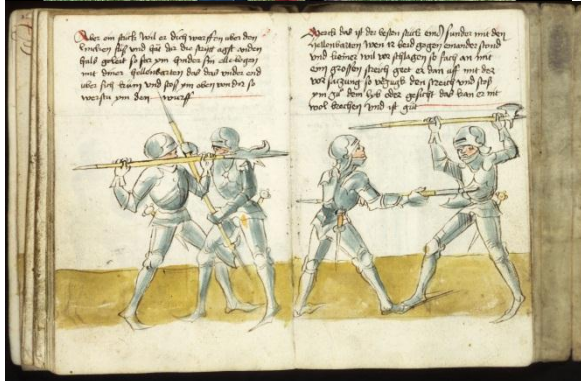 Aber ein stuck wil er dich werffen uber den
lincken fuß vnd hat dir die stang an den
halß geleit so ym hinder sin elle bogen
mit diner hellenbarten das das vnder end
uber sich kum vnd stos ym oben von dir so
werstu ym den wurff
Merck das ist der besten stuck ein mit den
hellenbarten wen ir beid gegen enander stond
vnd keiner wil vor schlagen so fach an mit
eim grossen streich gett er dan uff mit der
vor satzung so verzuck den streich vnd stoß
ym zu dem lyb oder gesicht das kan er nit
wol brechen vnd ist gut